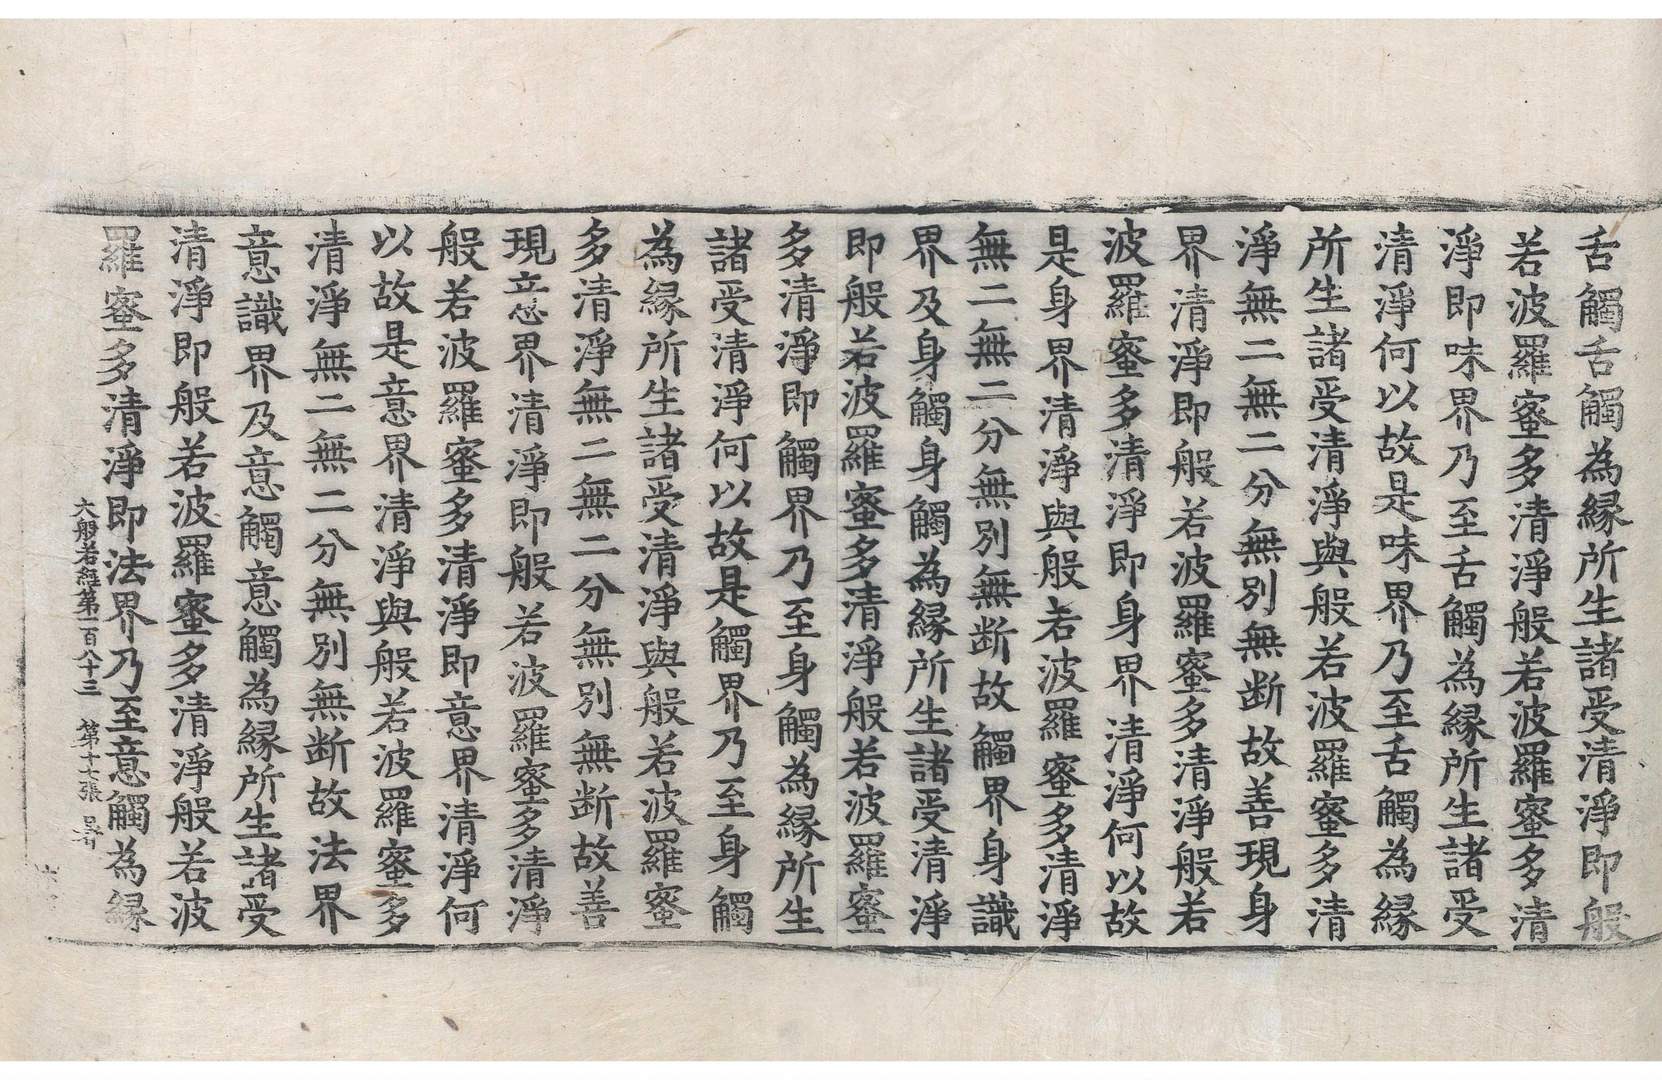 舌觸舌觸為縁所生諸受清淨即般
若波羅蜜多清淨般若波羅蜜多清
淨即味界乃至舌觸為縁所生諸受
清淨何以故是味界乃至舌觸為縁
所生諸受清淨與般若波羅蜜多清
淨無二無二分無別無断故善現身
界清淨即般若波羅蜜多清淨般若
波羅蜜多清淨即身界清淨何以故
是身界清淨與般若波羅蜜多清淨
無二無二分無別無断故觸界身識
界及身觸身觸為縁所生諸受清淨
即般若波羅蜜多清淨般若波羅蜜
多清淨即觸界乃至身觸為縁所生
諸受清淨何以故是觸界乃至身觸
為縁所生諸受清淨與般若波羅蜜
多清淨無二無二分無別無断故善
現意界清淨即般若波羅蜜多清淨
般若波羅蜜多清淨即意界清淨何
以故是意界清淨與般若波羅蜜多
清淨無二無二分無別無断故法界
意識界及意觸意觸為縁所生諸受
清淨即般若波羅蜜多清淨般若波
羅蜜多清淨即法界乃至意觸為縁
般若經第一百八十三 第十七張